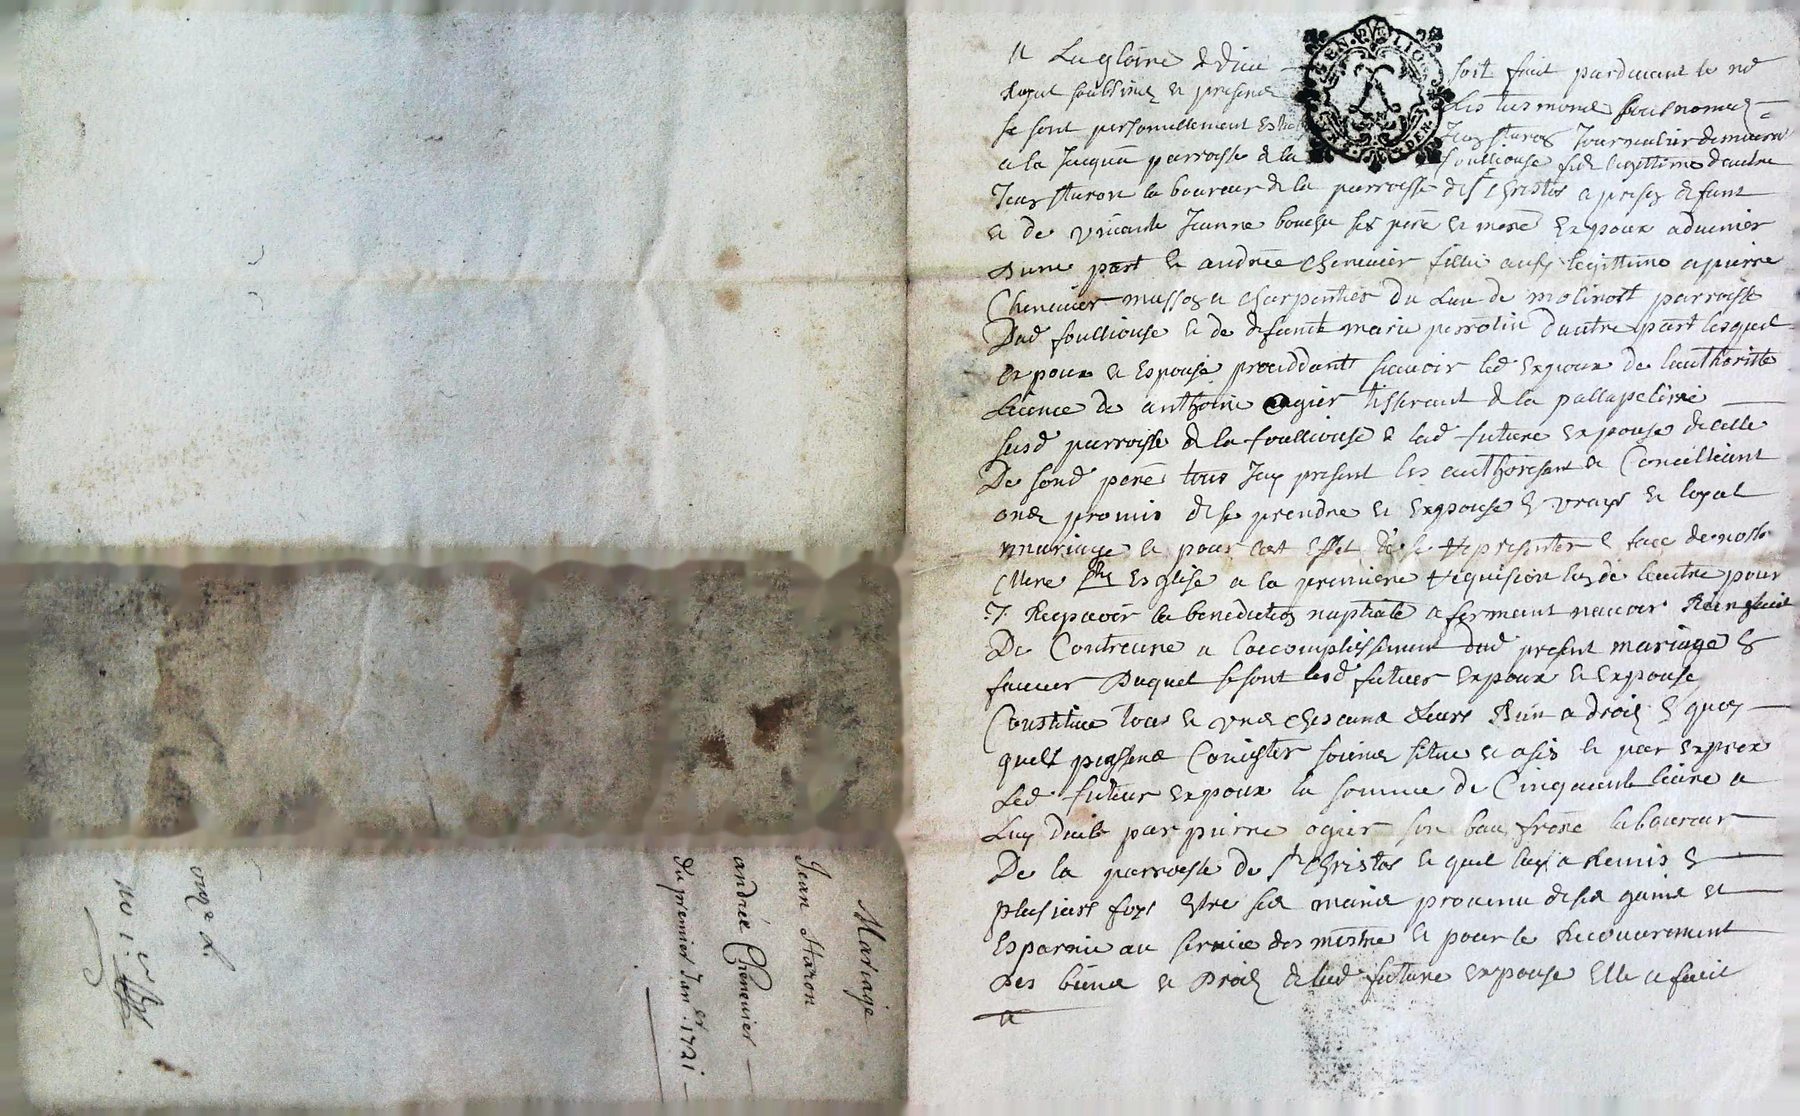 Mariage
Jean Staron
andrée Chenevier
du premier Jan.er 1721
A La gloire de dieu soit fait pardevant le no.e
Royal soubsigné et présence des tesmoins soubsnommes
se sont personnellement establis Jean Staron Journalier demeurant
a la parroisse de la fouillouse fils légittime d'autre
Jean Staron laboureur de la parroisse de St Christo a présent défunt
et de vivante Jeanne ses père et mère expoux advenier
D'une part et andrée Chenevier fille aussy légittime a pierre
Chenevier masson et charpentier du Lieu de molinost parroisse
Dud fouillouse et de défunte marie perrotin d'autre part lesquels
expoux et espouse proceddants scavoir led expoux de l'authoritté
Licence de anthoine ogier tisserant de la
susd parroisse de la fouillouse et lad future expouse de celle
De sond père tous Icy présent les authorisant et Conceilliant
ont promis de se prendre et expouser en vray et loyal
mariage et pour cest effet de se représenter en face de nostre
Mère Ste Esglise a la première réquisition l'un de l'autre pour
y Recepvoir la bénédiction nuptialle afermant n'avoir Rien fait
De Contreire a l'accomplissement dud présent mariage en
faveur Duquel se sont lesd futeurs expoux et expouse
Constitué tous et uns chescuns Leurs Bien et droits en quoy
quels puissent Concister soient situé et assis et par exprex
Led futeur expoux la somme de Cinquante livre a
Luy deub par pierre ogier son beau frère laboureur
De la parroisse de St Christo le quel luy a Remis en
plusieurs foys estre sed provenu de sed gaine et
Esparnie au service des mestre et pour le Recouvrement
Des biens et Droits de lad future expouse Elle a fait